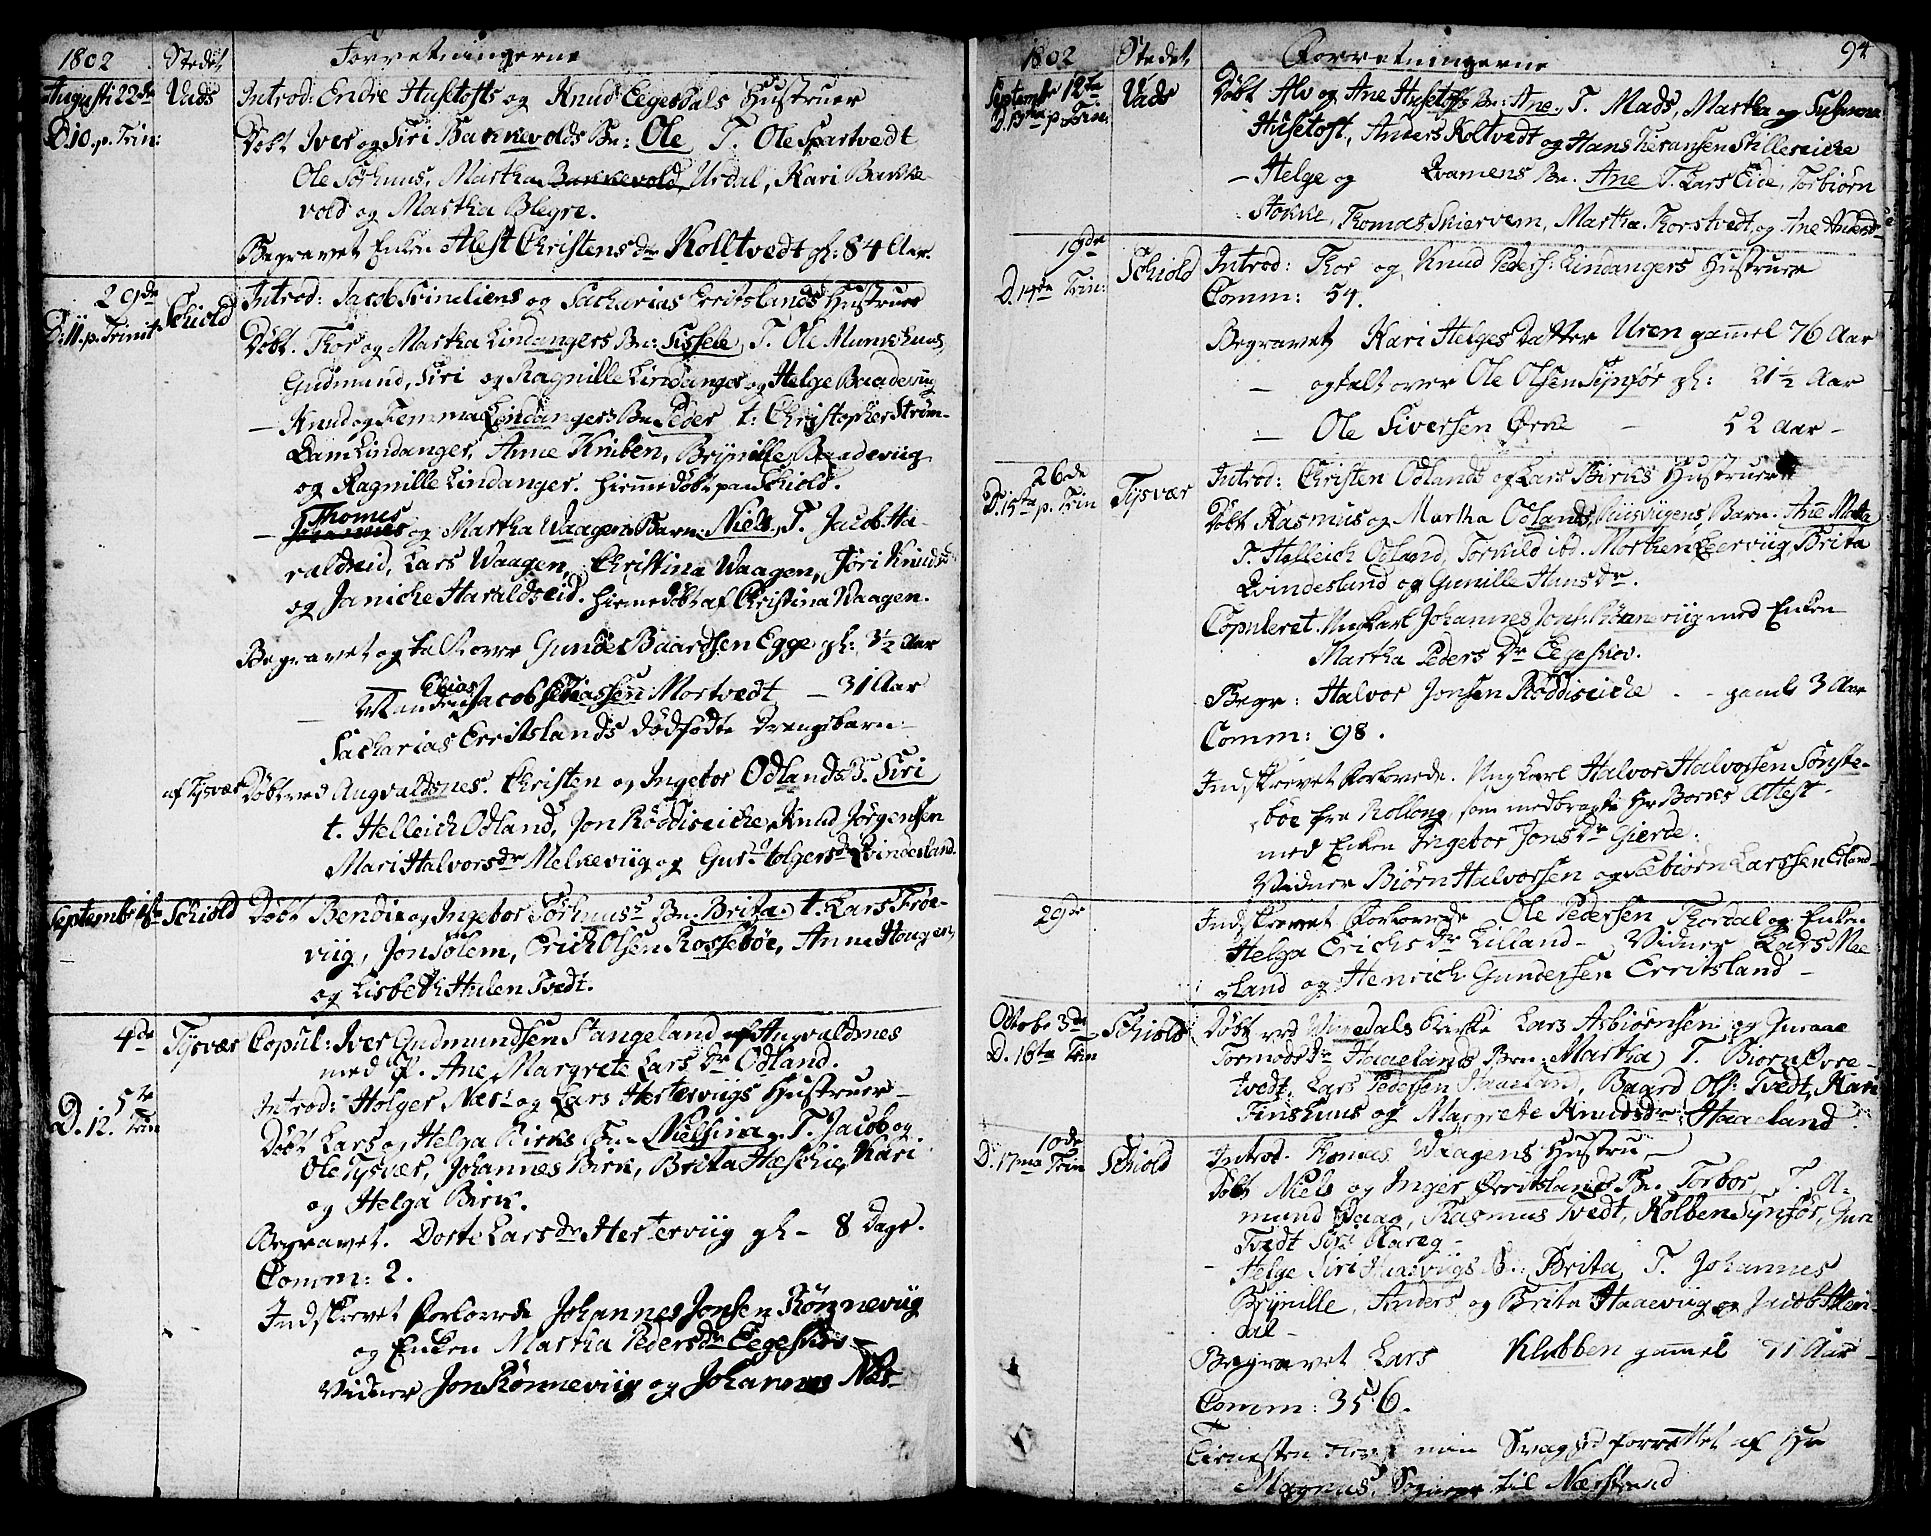 1802 Stedet Forretningerne
Augusti 22de Vads Introd: Endre Husetofts og Knud Eegesdals Hustruer
D. 10. p. Trin: Døbt Iver og Siri Bakkevolds Bn: Ole T. Ole Spartvedt
Ole Sørhuus, Martha Bakkevold Urdal, Kari Bakke-
vold og Martha Blegre.
Begravet Enken Alest Christens Dr Kolltvedt gl: 84 Aar.
29de Schiold Introd: Jacob Sviniliens og Sacharias Erritslands Hustruer
D: 11. p. Trinit: Døbt. Thor og Martha Lindangers Bn: Sissele T. Ole Munkhuus,
Gudmund, Siri og Ragnille Lindanger og Helge Baadeviig
- Knud og Lindangers Bn Peder t: Christopher Strøm-
Lindanger, Anne Kniben, Brynille Baadeviig
og Ragnille Lindanger. hiemedøbt paa Schiold.
Thomas
- Johannes og Martha Waagens Barn: Niels T. Jacob Ha-
raldseid, Lars Waagen, Christina Waagen, Jøri Knudsd:
og Janiche Haraldseid. hiemedøbt af Christina Waagen.
Begravet og talt over Gunder Baardsen Egge gl: 3½ Aar
Elias
- Manden Jacob Eliassen Mortvedt - 31 Aar
Sacharias Erritslands dødfødte Drengebarn
af Tysvær Døbt ved Augvaldsnes. Christen og Ingebor Odlands B: Siri
t. Helleich Odland, Jon Røddiseiche, Knud Jørgensen
Mari Halvors Dr Melkeviig og Guri Holgers Dr Qvindesland.
Septembr 1ste Schiold Døbt Bendix og Ingebor Sørhuus's Bn. Brita t. Lars Frøe-
viig, Jon Solem, Erich Olsen Rossebøe, Anne Hougen
og Lisbeth Hulen Tvedt.
4de Tysvær Copul: Iver Gudmundsen Stangeland af Augvaldsnes
med P. Ane Margrete Lars Dr Odland.
5te Introd: Holger Nes: og Lars Herterviigs Hustruer
D. 12. Trin Døbt Lars og Helga Birks Bn. Nielsina, T. Jacob og
Ole Tysvær, Johannes Birk, Brita Hæschie, Kari
og Helga Birk.
Begravet. Dorte Lars Dr Herterviig gl - 8 Dage.
Comm: 2.
Indskrevet Forlovede Johannes Jonsen Rønneviig
og Enken Martha Peders Dr Eegeskov
Vidner Jon Rønneviig og Johannes Nes
1802 Stedet Forretningerne 94
Septembr 12te Vads Døbt Alv og Ane Husetofts Bn: Ane, T. Mads, Martha og
D. 13de p. Trin: Husetoft, Anders Koltvedt og Hans Stillereiche
- Helge og Qvamens Bn. Ane T. Lars Eide, Torbiørn
Stokke, Thomas Skiervem, Martha Thorstvedt, og Ane Anders
19de Schiold Introd: Thor og Knud Peders: Lindangers Hustruer
D. 14de Trin: Comm: 54.
Begravet Kari Helges Datter Uren gamel 76 Aar
- og talt over Ole Olsen Synfør gl: 21½ Aar
- Ole Siversen Ørke - 52 Aar -
26de Tysvær Introd: Christen Odlands og Lars Birks Hustruer
D. 15de p. Trin Døbt Rasmus og Martha Odlands Barn. Ane Malta
T. Helleich Odland, Torkild ibd. Morthen Leerviig Brita
Qvindesland og Gunille Hans Dr.
Copuleret. Ungkarl Johannes Jons: Rønneviig med Enken
Martha Peders Dr Eegeskov.
Begr: Halvor Jonsen Røddiseiche - - gamel 3 Aar
Comm: 98.
Indskrevet Forlovede. Ungkarl Halvor Halvorsen Sønste-
bøe fra Rollong, som medbragte Hr Borks Attest
med Enken Ingebor Jons Dr Gierde.
Vidner Biørn Halvorsen og Sæbiørn Larssen Erland
29de Indskrevet Forlovede Ole Pedersen Thordal og Enken
Helga Erichs Dr Lilland - Vidner Lars Mæ-
land og Henrich Gundersen Erritsland -
Octobr 3de Schiold Døbt ved Windedals Kirke Lars Asbiørnsen og Gurane
D. 16te Trin Tormods Dr Haaelands Bn: Martha T. Biørn Øvre-
tvedt, Lars Pedersen Haaeland, Baard Ols: Tvedt, Kari
Finshuus og Margrete Knuds Dr Haaeland.
10de Schiold Introd. Thomas Waagens Hustru
D. 17me Trin Døbt Niels og Inger Erritslands Bn. Torbor, T. A-
mund Waag, Rasmus Tvedt, Kolben Synfør, Guri
Tvedt Siri
- Helge Siri Haaeviigs B.: Brita T. Johannes
Brynille, Anders og Brita Haaeviig og Jacob
dal -
Begravet Lars Klubben gammel 71 Aar -
Comm: 356.
Tienesten i min Svaghed forrettet af Hr
Magnus, til Nærstrand